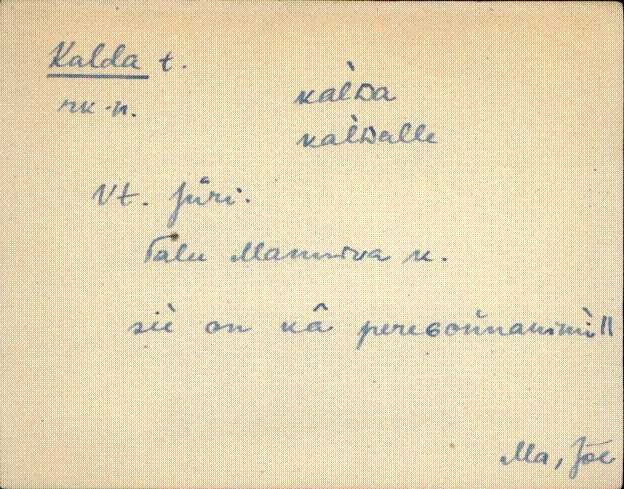 Kalda t.
rk-n.
kàlᴅa
kàlᴅalle
Vt. Jüri.
Talu Manniva k.
siè on kâ pereɢoǹnanimì ||
Ma, Jõe